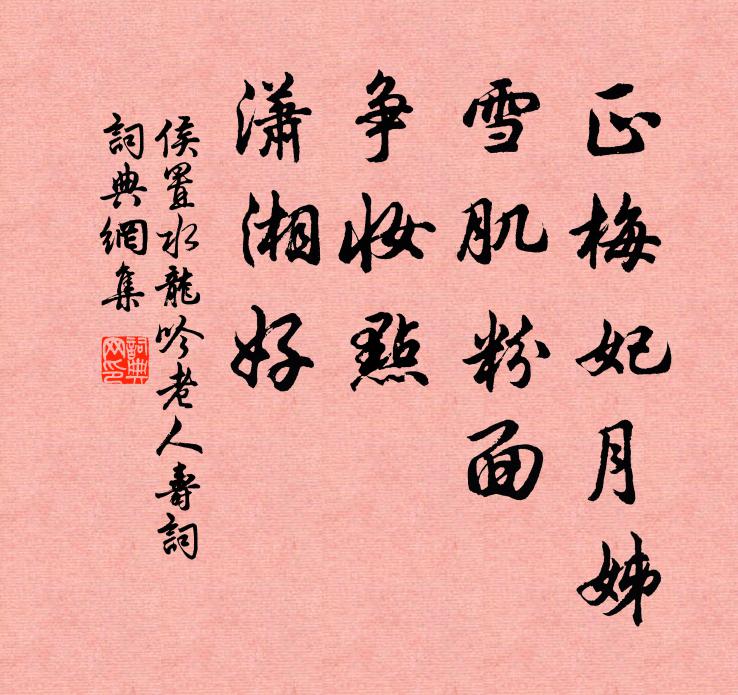 正梅妃月姊
雪肌粉面
争妆點
瀟湘好
侯置水龍吟老人壽詞
詞典網集
詞典網印